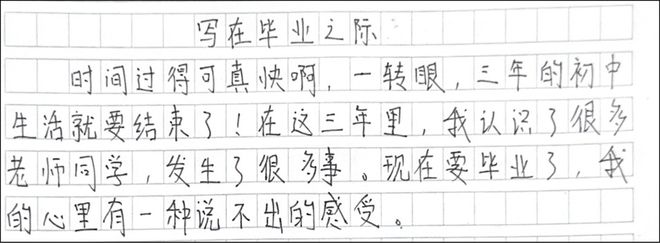 写在毕业之际
时间过得可真快啊，一转眼，三年的初中
生活就要结束了！在这三年里，我认识了很多
老师同学，发生了很多事。现在要毕业了，我
的心里有一种说不出的感受。